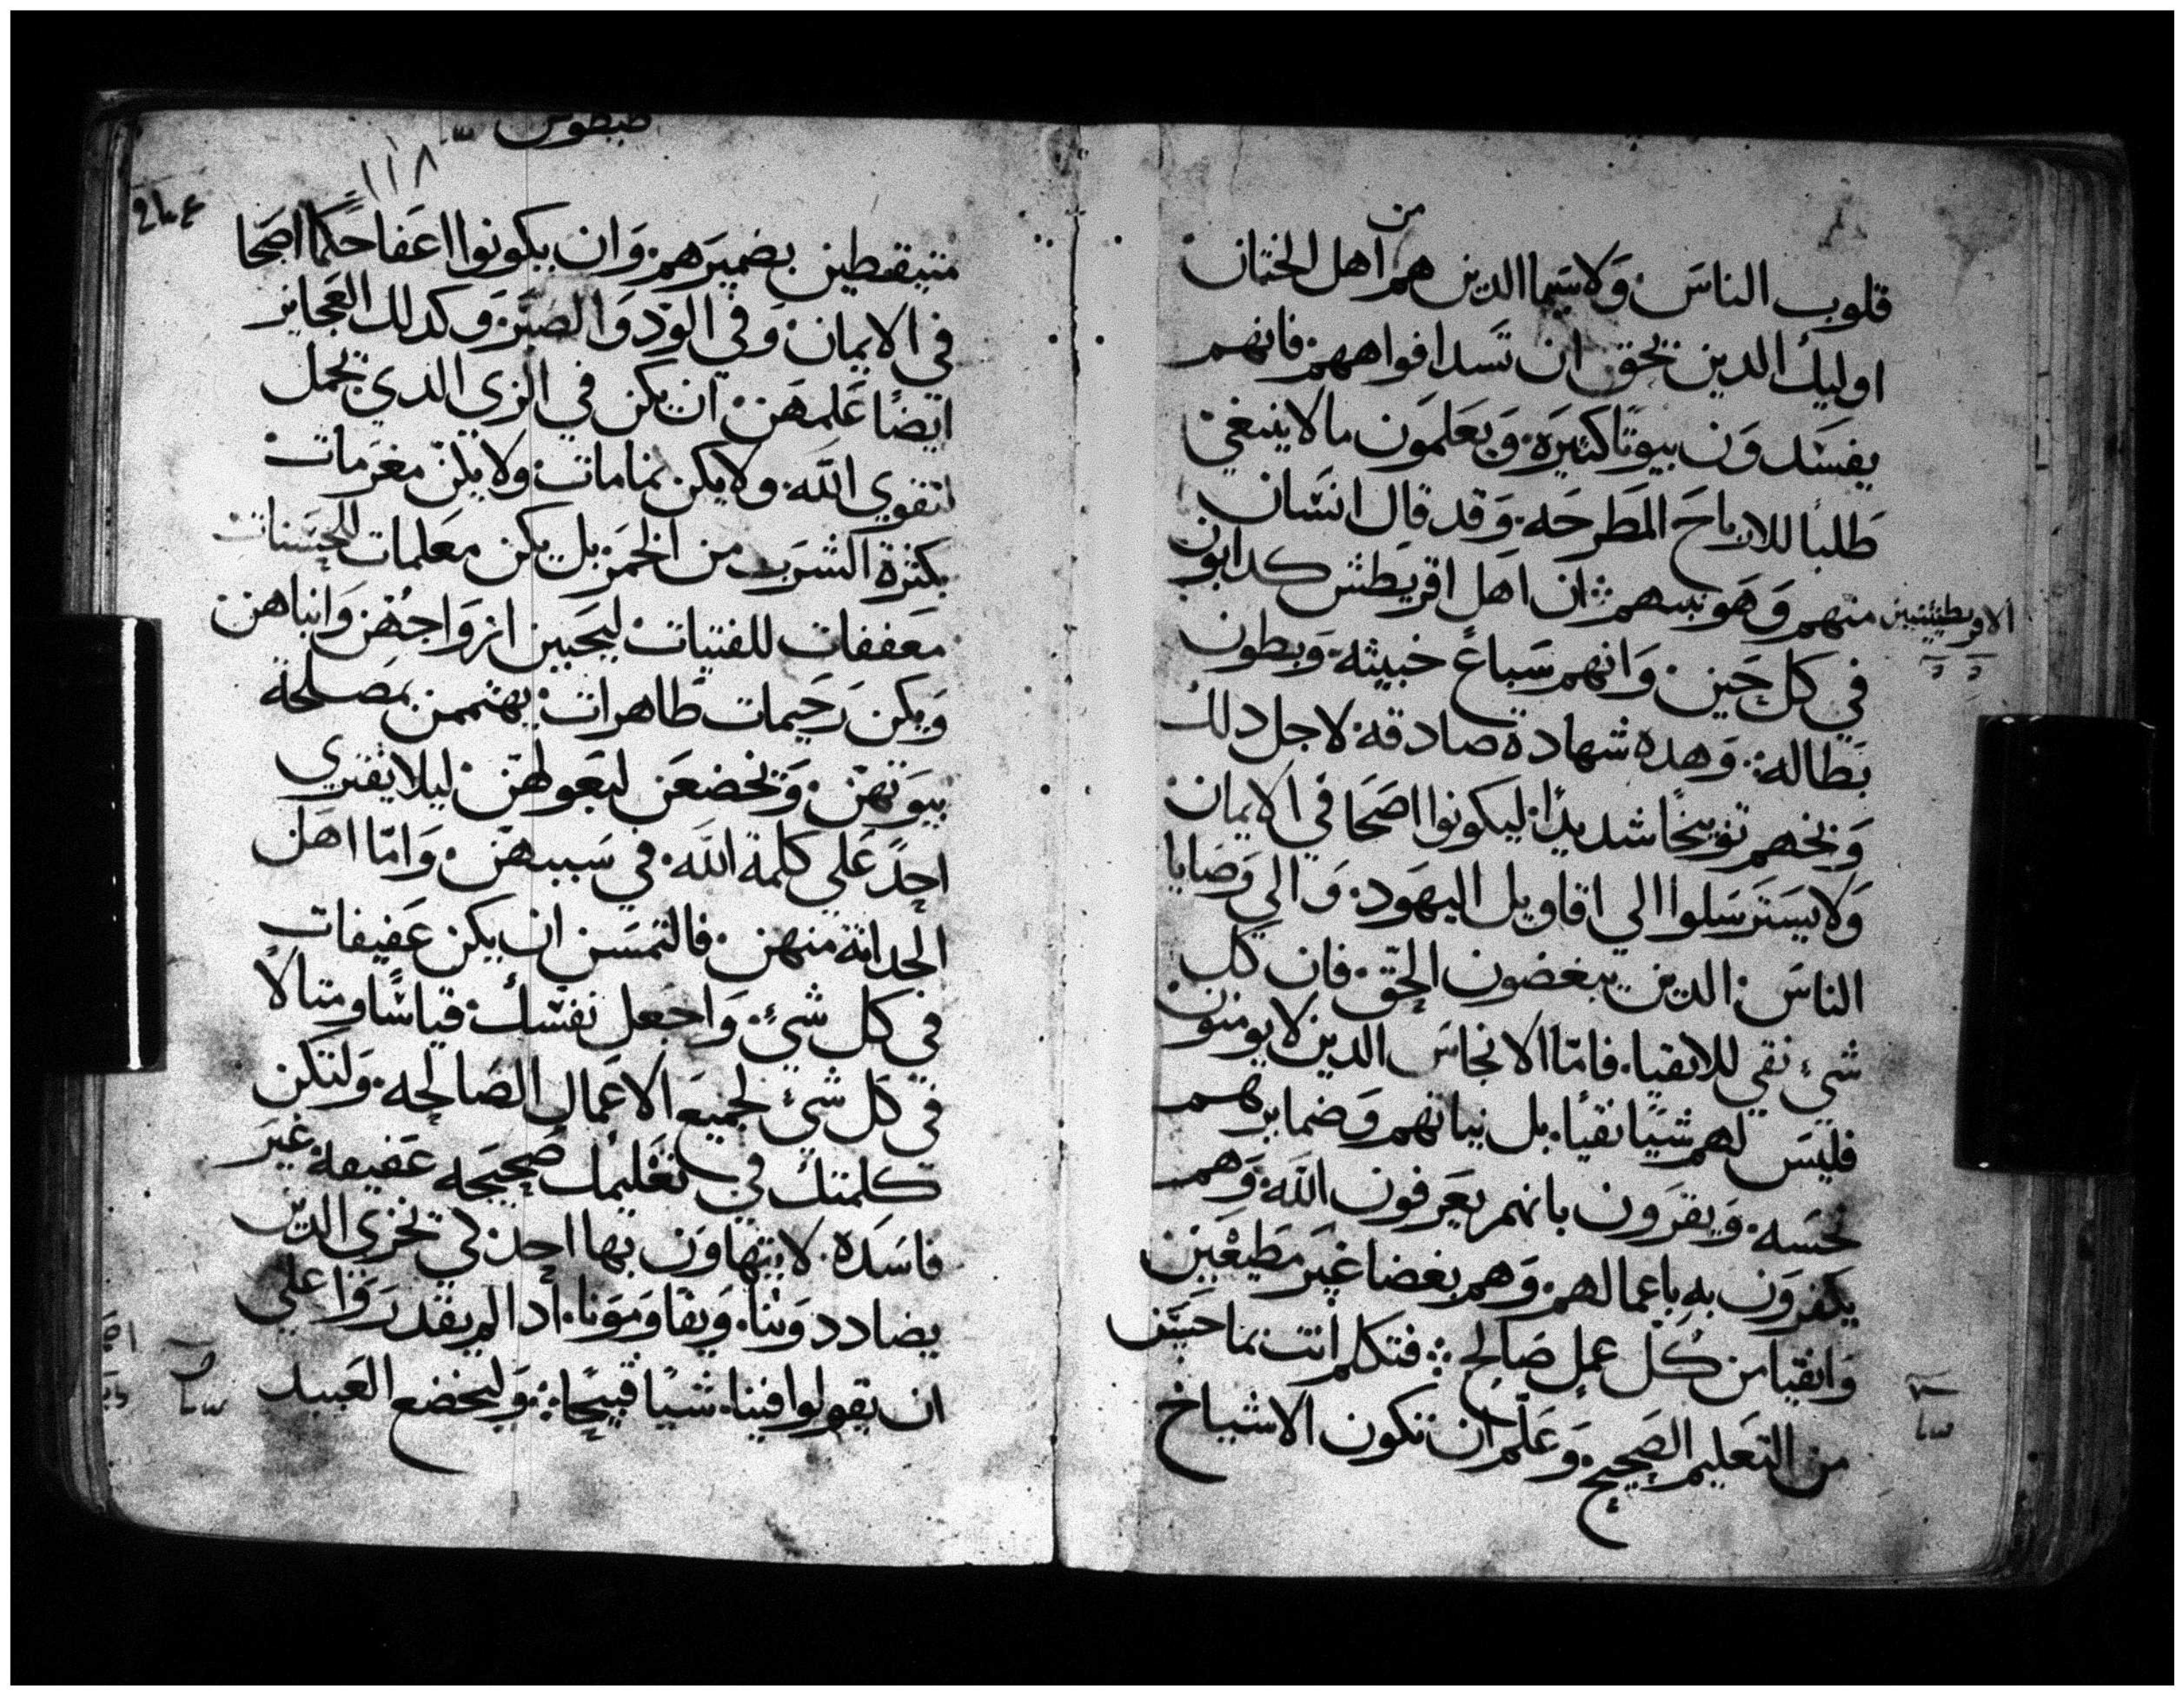 من
قلوب الناس ولا سيما الدين هم اهل الختان
اوليك الدين يحق ان تسد افواههم فانهم
يفسدون بيوتا كثيرة ويعلمون ما لا ينبغي
طلبا للارباح المطرحه وقد قال انسان
الاقريطيشيين منهم وهو نبيهم ان اهل اقريطش كدابون
في كل حين وانهم سباع خبيثه وبطون
بطاله وهده شهادة صادقة لاجل دلك
وبخهم توبيخا شديدا ليكونوا اصحا في الايمان
ولا يسترسلوا الي اقاويل اليهود والي وصايا
الناس الدين يبغضون الحق فان كل
شيء نقي للانقيا فاما الانجاس الدين لا يومنون
فليس لهم شيا نقيا بل نياتهم وضمايرهم
نجسه ويقرون بانهم يعرفون الله وهم
يكفرون به باعمالهم وهم بغضا غير مطيعين
وانقيا من كل عمل صالح فتكلم انت بما حسن
من التعليم الصحيح وعلم ان تكون الاشياخ
طيطوس
١١٨
متيقظين بضميرهم وان يكونوا اعفا حكما اصحا
في الايمان وفي الود والصبر وكدلك العجايز
ايضا علمهن ان يكن في الزي الدي يجمل
لتقوي الله ولا يكن نمامات ولا يكن مغرمات
بكثرة الشرب من الخمر بل يكن معلمات للحسنات
معففات للفتيات ليحببن ازواجهن وابناهن
ويكن رحيمات طاهرات يهتممن بمصلحة
بيوتهن ويخضعن لبعولهن ليلا يفتري
احد علي كلمة الله في سببهن واما اهل
الحداثة منهن فالتمسن ان يكن عفيفات
في كل شيء واجعل نفسك قياسا ومثالا
في كل شيء لجميع الاعمال الصالحه ولتكن
كلمتك في تعليمك صحيحه عفيفه غير
فاسده لا يتهاون بها احد لكي تخزي الدين
يضاددوننا ويقاومونا ادا لم يقدروا علي
ان يقولوا فينا شيا قبيحا وليخضع العبيد